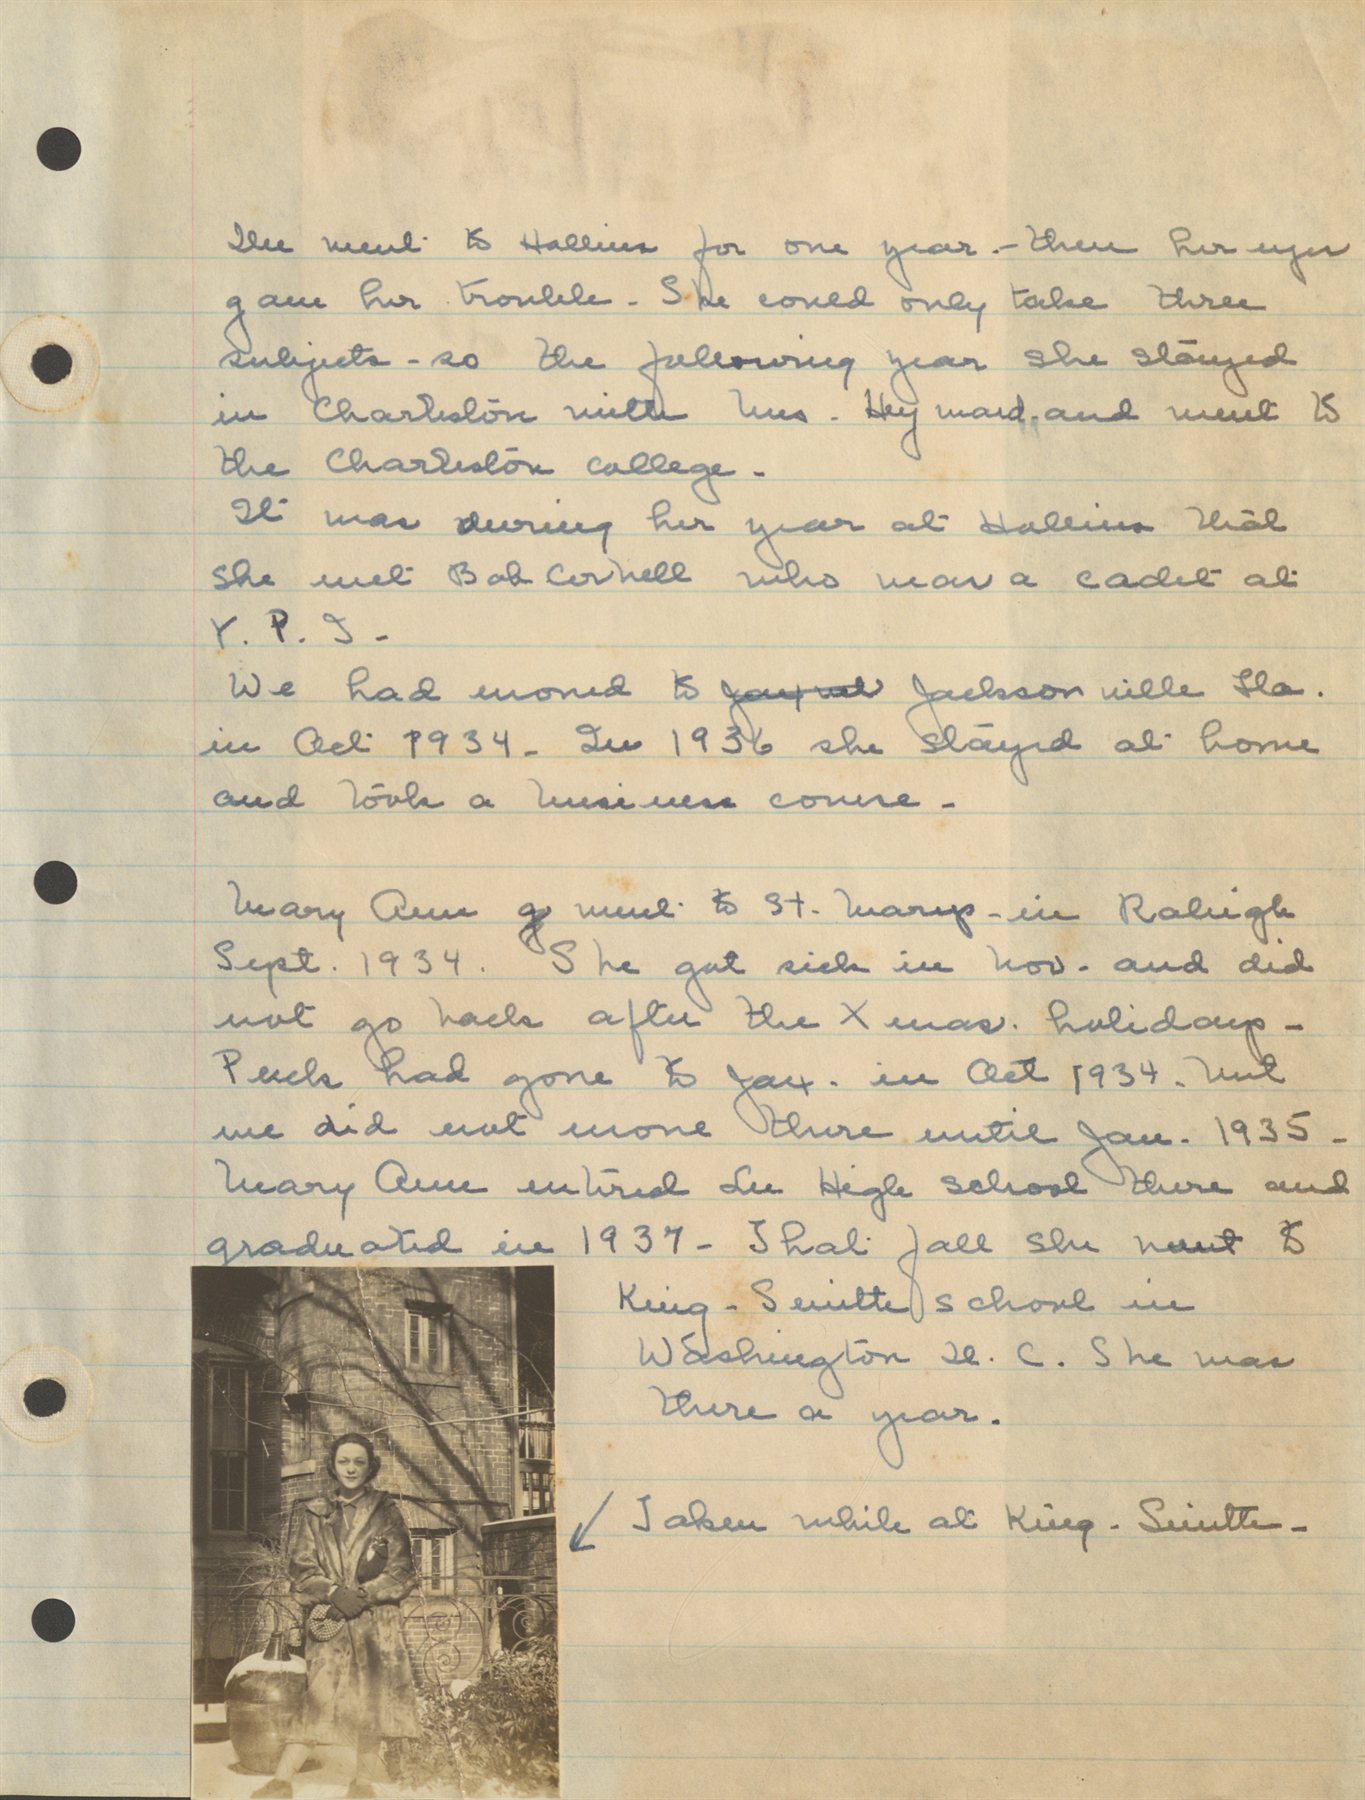 She went to Hollins for one year. - then her eyes
gave her trouble - She could only take three
subjects - so the following year she stayed
in Charleston with Mrs. Heyward. and went to
the Charleston College -
It was during her year at Hollins that
she met Bob Cornell who was a cadet at
V. P. I -
We had moved to Jacksonville Fla.
in Oct 1934 - In 1936 she stayed at home
and took a business course -
Mary Ann went to St. Marys - in Raleigh
Sept. 1934. She got sick in Nov. and did
not go back after the Xmas. holidays -
Puck had gone to Jax. in Oct 1934. but
we did not move there until Jan. 1935 -
Mary Ann entered Lee High School there and
graduated in 1937 - That fall she went to
King - Smith school in
Washington D. C. She was
there a year.
Taken while at King - Smith -